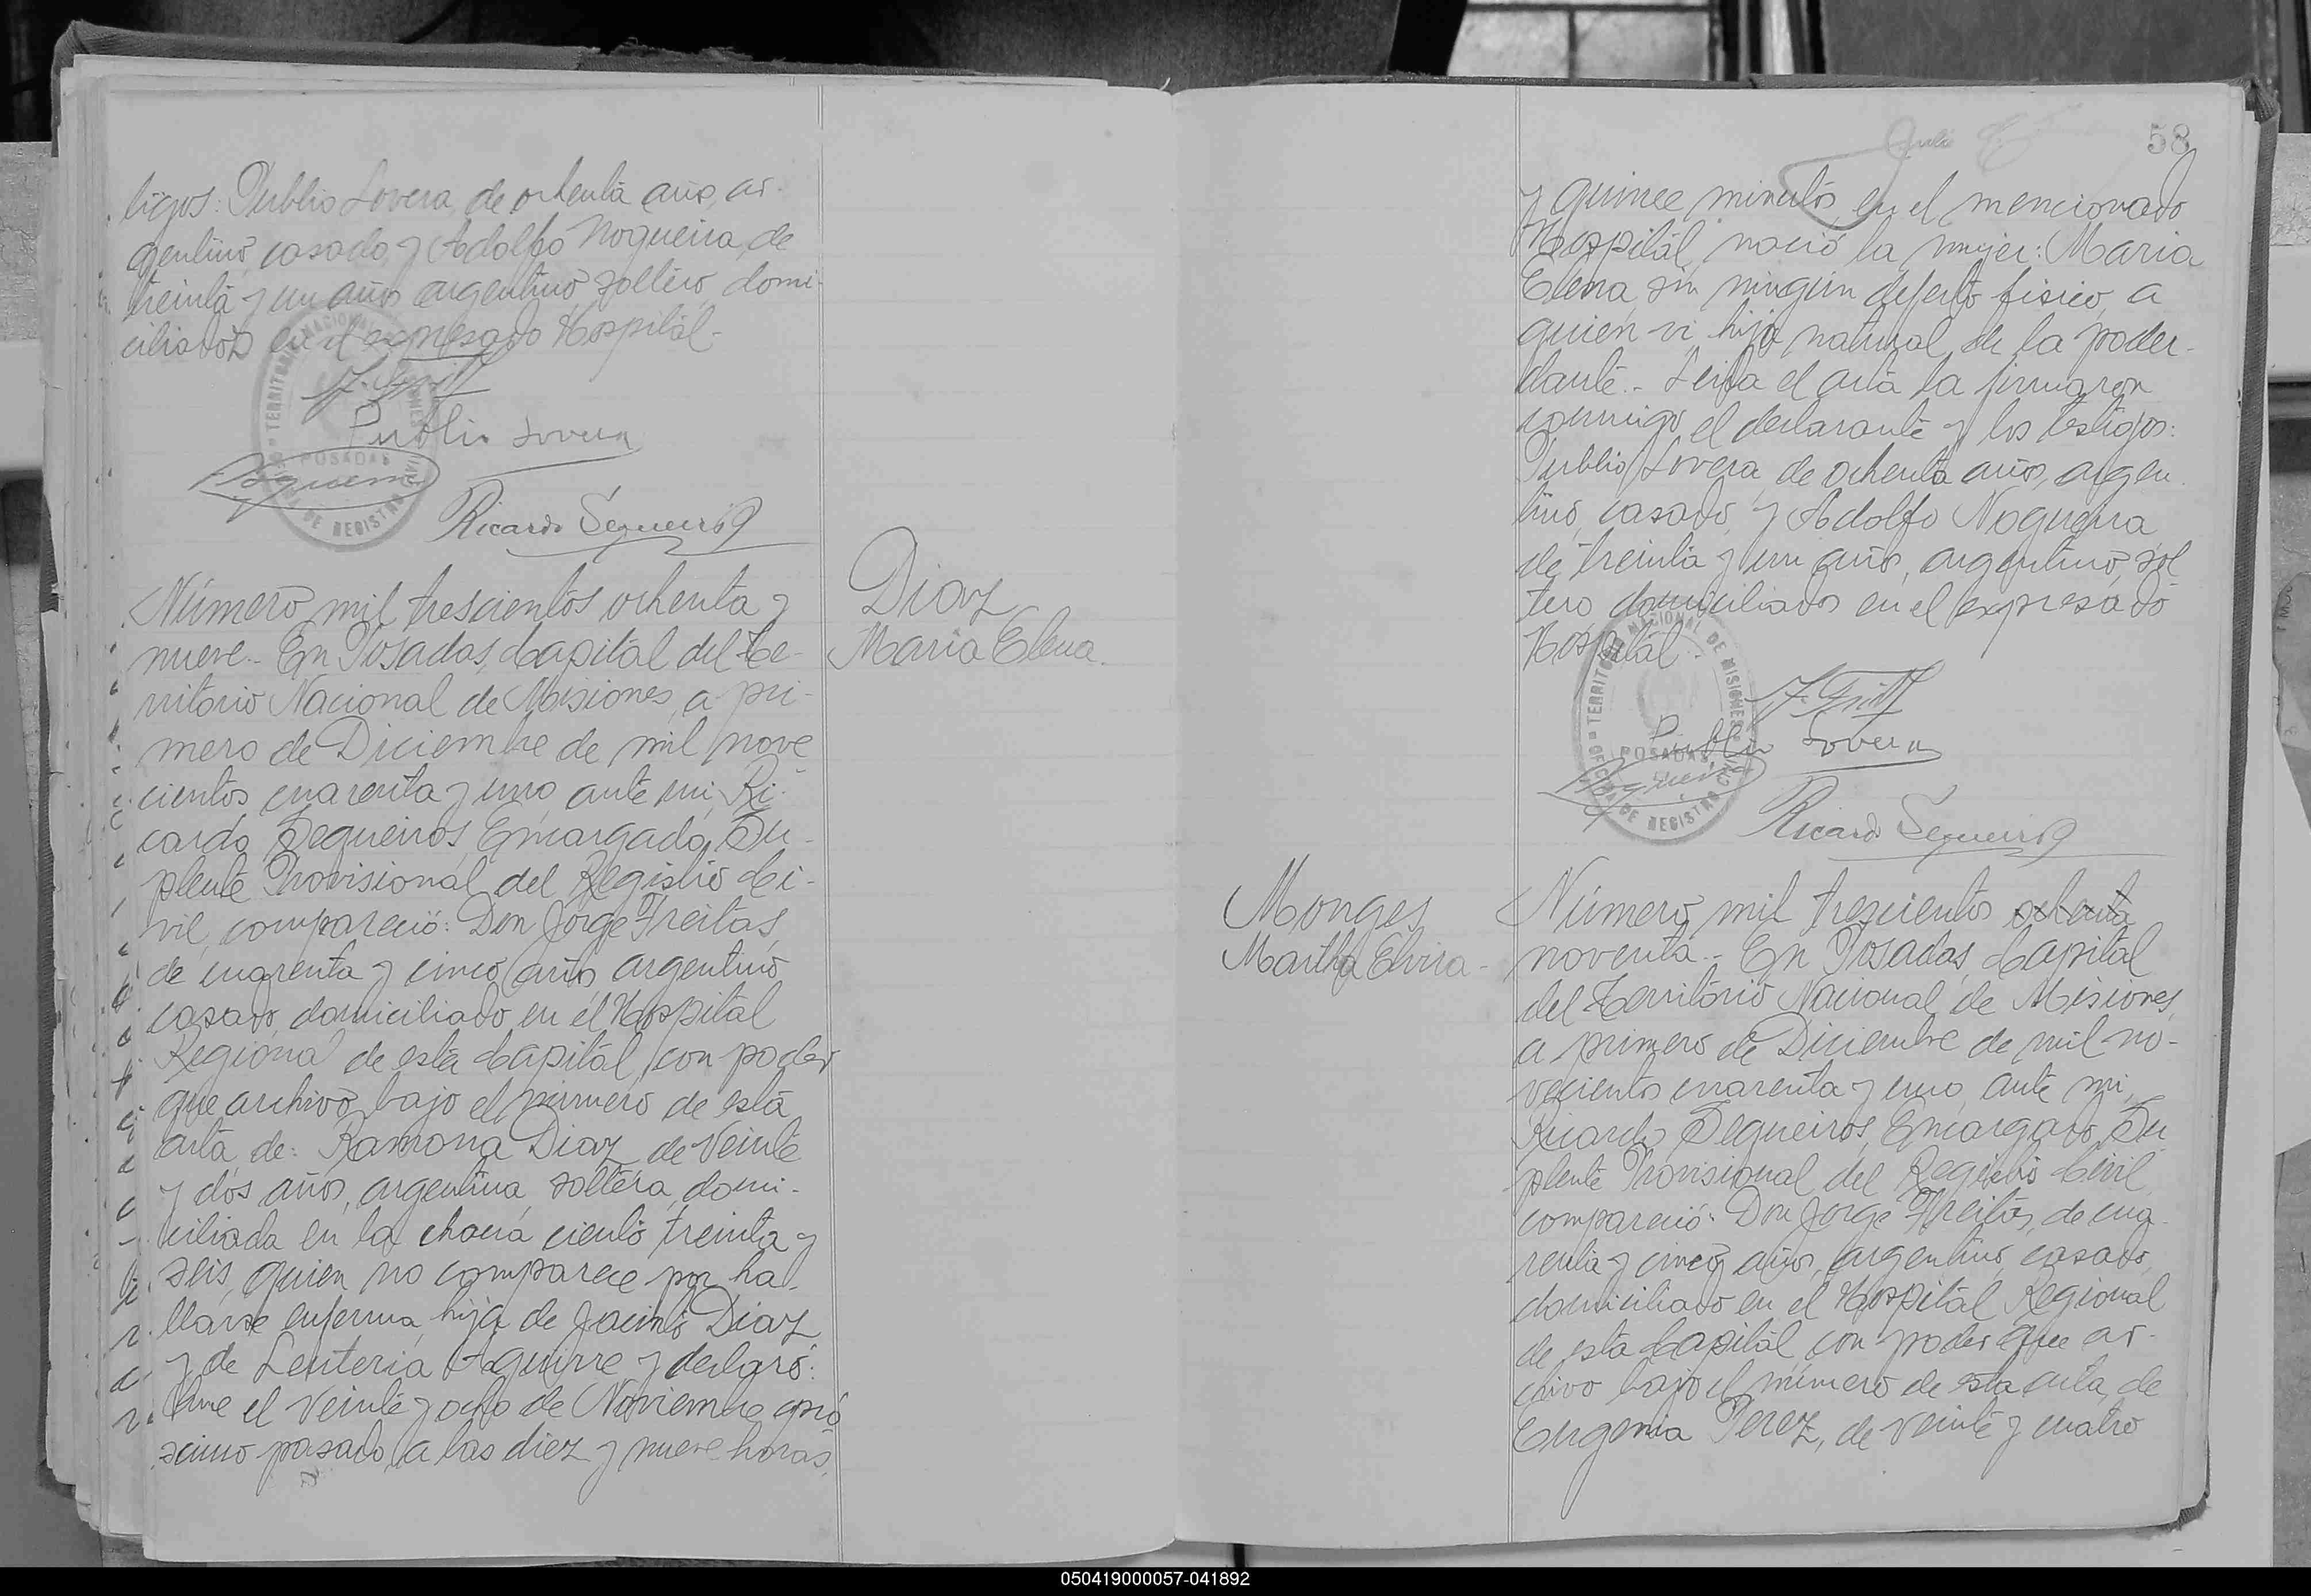 tigos: Publio Lovera, de ochenta años, ar-
gentino, casado, y Adolfo Nogueira, de
treinta y un años, argentino, soltero, domi-
ciliados en el expresado Hospital.-
Publio Lovera
Ricardo Sequeiros
TERRITORIO NACIONAL DE MISIONES
POSADAS
OFICINA DE REGISTRO CIVIL
Número mil trescientos ochenta y
nueve.- En Posadas, Capital del Te-
rritorio Nacional de Misiones, a pri-
mero de Diciembre de mil nove
cientos cuarenta y uno, ante mi, Ri-
cardo Sequeiros, Encargado Su-
plente Provisional del Registro Ci-
vil, compareció: Don Jorge Freitas,
de cuarenta y cinco años, argentino,
casado, domiciliado en el Hospital
Regional de esta Capital, con poder
que archivo bajo el número de esta
acta, de: Ramona Diaz, de veinte
y dos años, argentina, soltera, domi-
ciliada en la chacra ciento treinta y
seis, quien no comparece por ha-
llarse enferma, hija de Jacinto Diaz
y de Leuteria Aguirre, y declaró:
Que el veinte y ocho de Noviembre pró
ximo pasado, a las diez y nueve horas,
Diaz
Maria Elena.
58
y quince minutos, en el mencionado
Hospital, nació la mujer: Maria
Elena, sin ningún defecto fisico, a
quien vi, hija natural de la poder-
dante.- Leida el acta la firmaron
conmigo el declarante y los testigos:
Publio Lovera, de ochenta años, argen
tino, casado, y Adolfo Nogueira,
de treinta y un años, argentino, sol
tero, domiciliados en el expresado
Hospital.-
Publio Lovera
Ricardo Sequeiros
TERRITORIO NACIONAL DE MISIONES
POSADAS
OFICINA DE REGISTRO CIVIL
Monges
Martha Elvira-
Número mil trescientos ochenta
noventa.- En Posadas, Capital
del Territorio Nacional de Misiones,
a primero de Diciembre de mil no-
vecientos cuarenta y uno, ante mi,
Ricardo Sequeiros, Encargado Su
plente Provisional del Registro Civil,
compareció: Don Jorge Freitas, de cua
renta y cinco años, argentino, casado,
domiciliado en el Hospital Regional
de esta Capital, con poder que ar-
chivo bajo el número de esta acta, de
Eugenia Perez, de veinte y cuatro
050419000057-041892